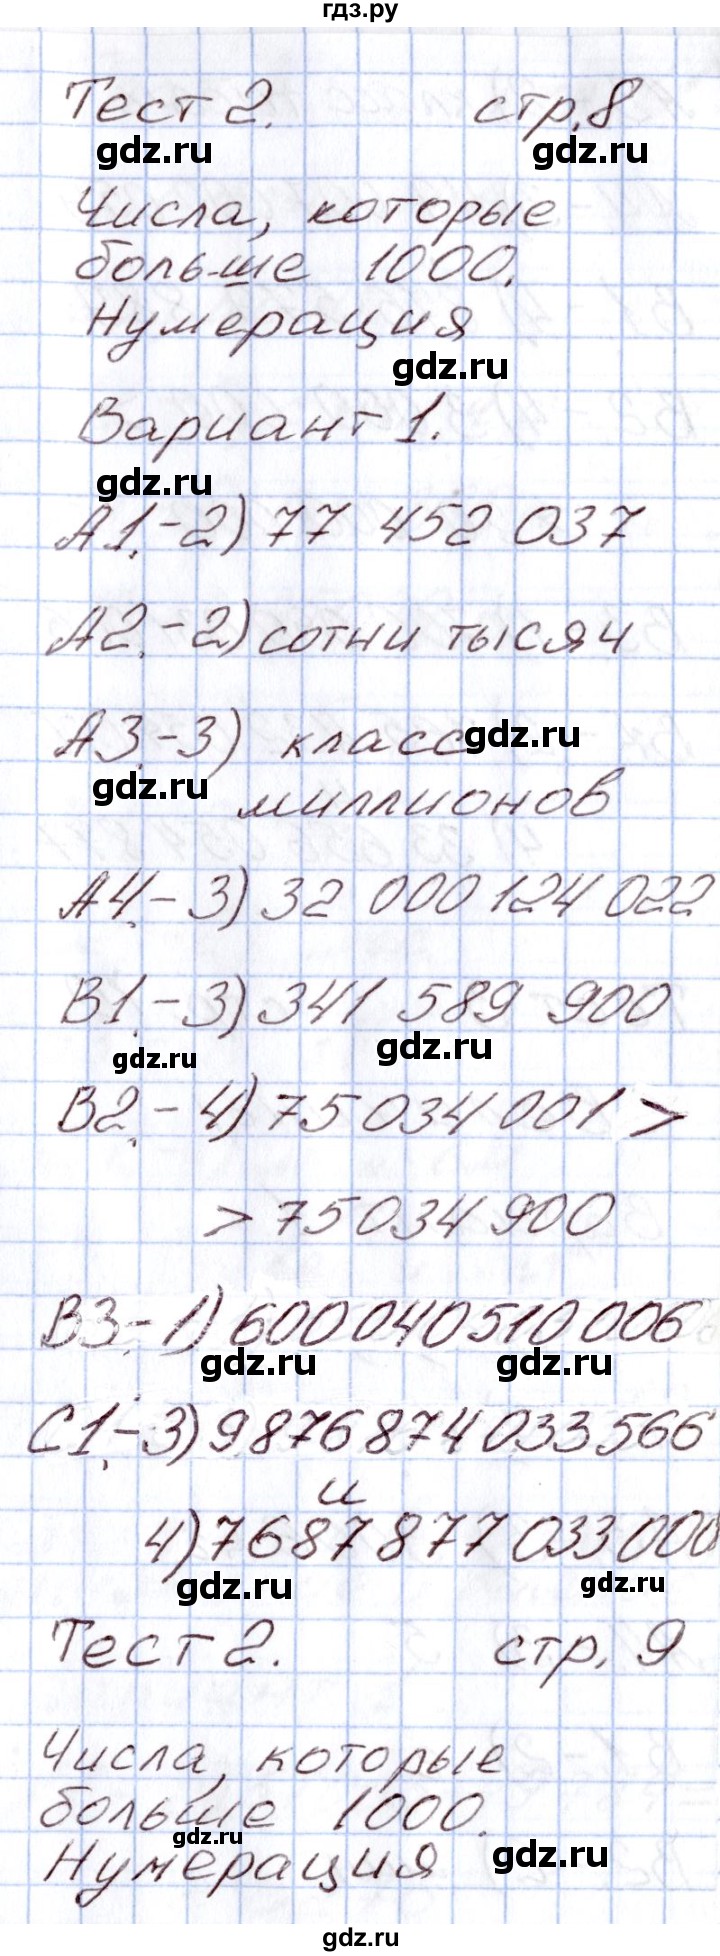 гдз.ру
Тест 2. стр. 8
gdz.ru gdz.ru
Числа, которые
больше 1000.
Нумерация
gdz.ru
Вариант 1.
gdz.ru
А1.-2) 77 452 037
А2.-2) сотни тысяч
А3.-3) класс
gdz.ru
gdz.ru
миллионов
А4.-3) 32 000 124 022
В1.-3) 341 589 900
gdz.ru gdz.ru
В2.-4) 75 034 001 >
> 75 034 900
В3.-1) 600 040 510 006
gdz.ru gdz.ru
С1.-3) 9876 874 033 566
и
4) 7687 877 033 000
gdz.ru gdz.ru
Тест 2. стр. 9
Числа, которые
больше 1000.
gdz.ru
Нумерация
gdz.ru
gdz.ru